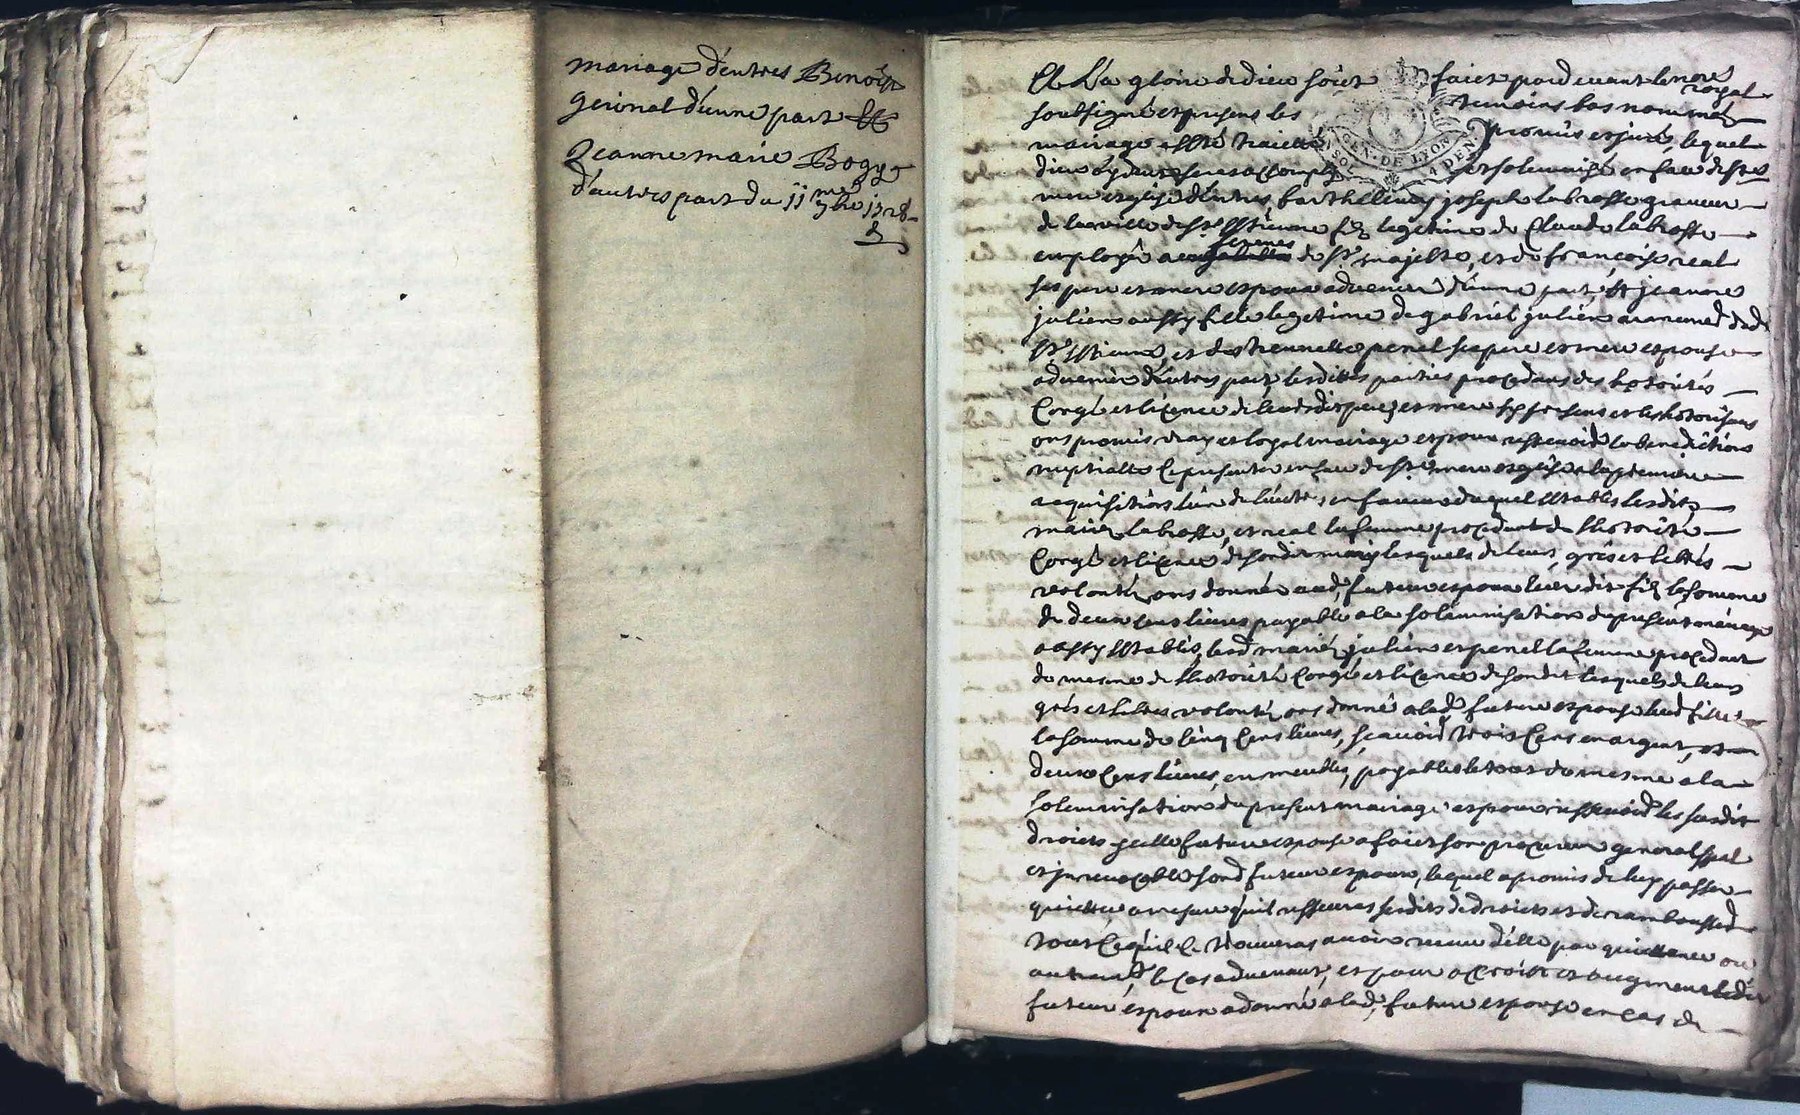 mariage d'entres Benoist
gerinal d'une part Et
Jeanne marie Boggy
d'autres part du 11me 9bre 1728
A La gloire de dieu soiet faict pard evant le nore royal
soubsigné et presens les temoins bas nommez
mariage esté traietté promis et juré, lequel
dieu aydent seras accomply et solemnisé en face de ste
GEN. DE LYON
4 DEN
mere esglize d'entres barthellemy joseph labrosse graveur
de la ville de st Estienne filz legitime de Claude labrosse
employé aux fermes de sa majesté, et de francoise real
ses pere et mere espoux advenir d'une part, Et jeanne
julien aussy fille legitime de gabriel julien dud
st Estienne, et destiennette penel ses pere et mere espouse
advenir d'autres part lesdittes parties procedans des hotorités
Congé et licence de leursdit pere et mere icy presens et les hotorisans
ont promis vray et loyal mariage et pour ressevoir la benediction
nuptialle Ce presenter en face de ste mere esglize a la premiere
acquisition l'un de l'autre, en faveur duquel Establis lesdits
mariez labrosse, et real la femme procedant de lhotorité
Congé et licence de son dit mary lesquels de leurs grés et libres
volontéz ont donné aud, futeur espoux leur dit filz la somme
de deux cens livres payable a la solemnisation du present mariage
aussy Establis, lesd mariéz julien et penel la femme procedant
de mesme de lhotorité Congé et licence de son dit lesquels de leurs
grés et libres volontéz ont donné a lad, future espouse leurd fille
la somme de Cinq Cens livres, scavoir trois Cens en argent, et
deux Cens livres, en meubles, payable le tout de mesme a la
solemnisation du present mariage et pour ressevoir les susdit
droiets jcelle future espouse a faict son procureur general spal
et jrrevocable sond futeur espoux, lequel a promis de luy passer
quiettance a mesure quil ressevras sesdits droiets et de rambousser
tout Cequil Ce trouveras avoir receu d'elle par quiettance ou
autrement le cas advenant, et pour accroist et augment ledit
futeur espoux a donné a lad, future espouse en cas de